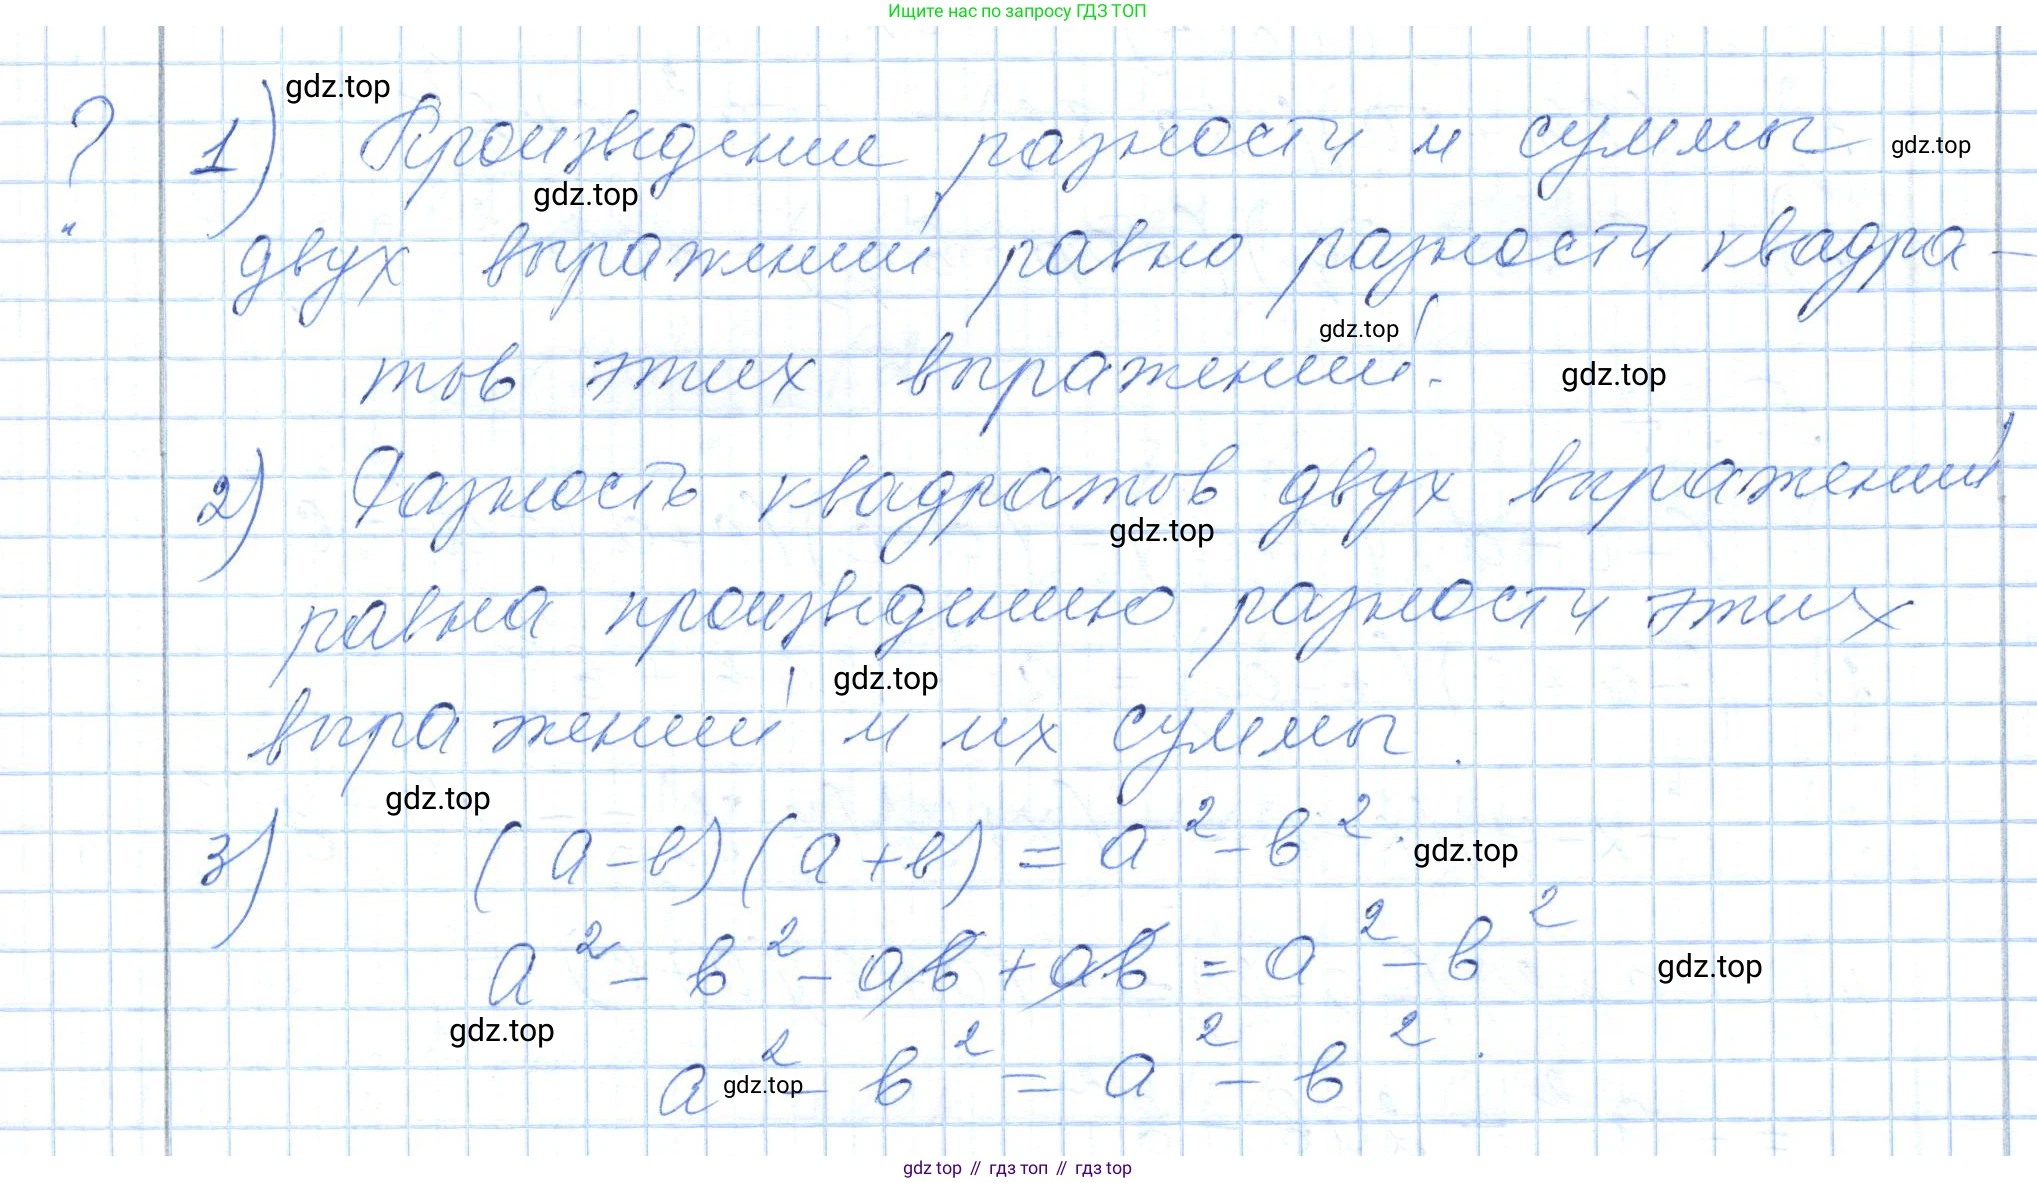 Ищите нас по запросу ГДЗ ТОП
gdz.top
? 1) Произведение разности и суммы
gdz.top
gdz.top
двух выражений равно разности квадра-
gdz.top
тов этих выражений.
gdz.top
2) Разность квадратов двух выражений
gdz.top
равна произведению разности этих
gdz.top
выражений и их суммы.
gdz.top
3) (a-b)(a+b) = a²-b².
gdz.top
a² - b² - ab + ab = a² - b²
gdz.top
gdz.top
a² - b² = a² - b².
gdz.top
gdz top // гдз топ // гдз top